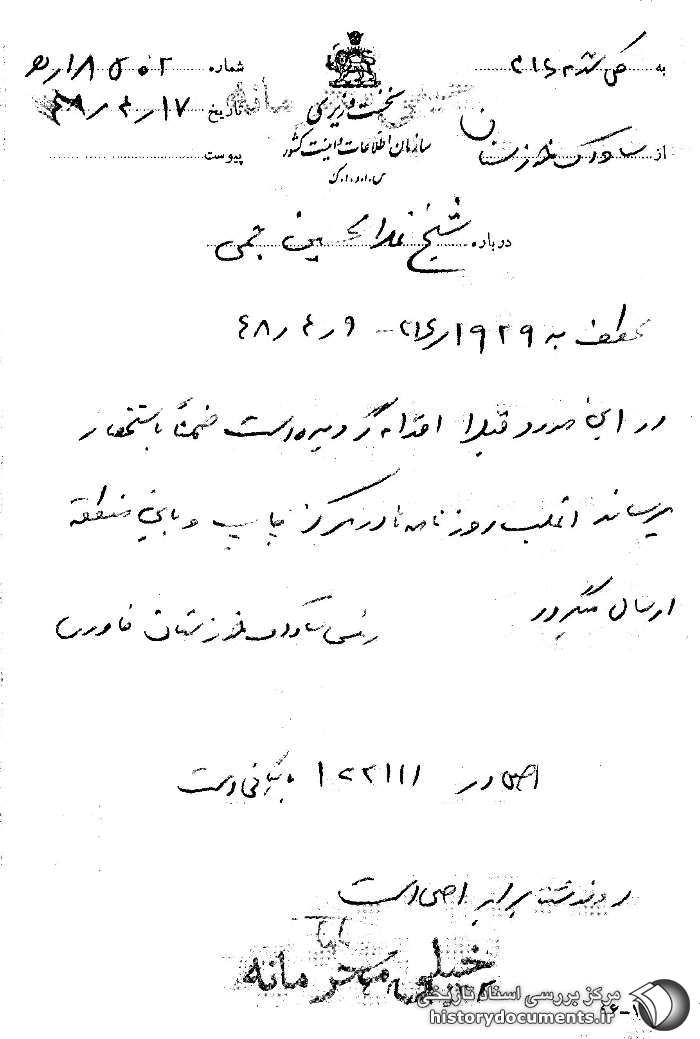 به مدیریت کل ۳۱۶
شماره ۱۸۵۰۲/ه‍
نخست وزیری
تاریخ ۴۸/۴/۱۷
خیلی محرمانه
از ساواک خوزستان
سازمان اطلاعات و امنیت کشور
پیوست
س.ا.و.ا.ک
درباره شیخ غلامحسین جمی
عطف به ۱۹۲۹/۳۱۶ - ۴۸/۴/۹
در این مورد قبلا اقدام گردیده است ضمناً باستحضار
میرساند اغلب روزنامه ها در مرکز چاپ و باین منطقه
ارسال میگردد
رئیس ساواک خوزستان خاوری
اصل در ۱۲۲۱۱۱ بایگانی است
رونوشت برابر اصل است
خیلی محرمانه
مرکز بررسی اسناد تاریخی
historydocuments.ir